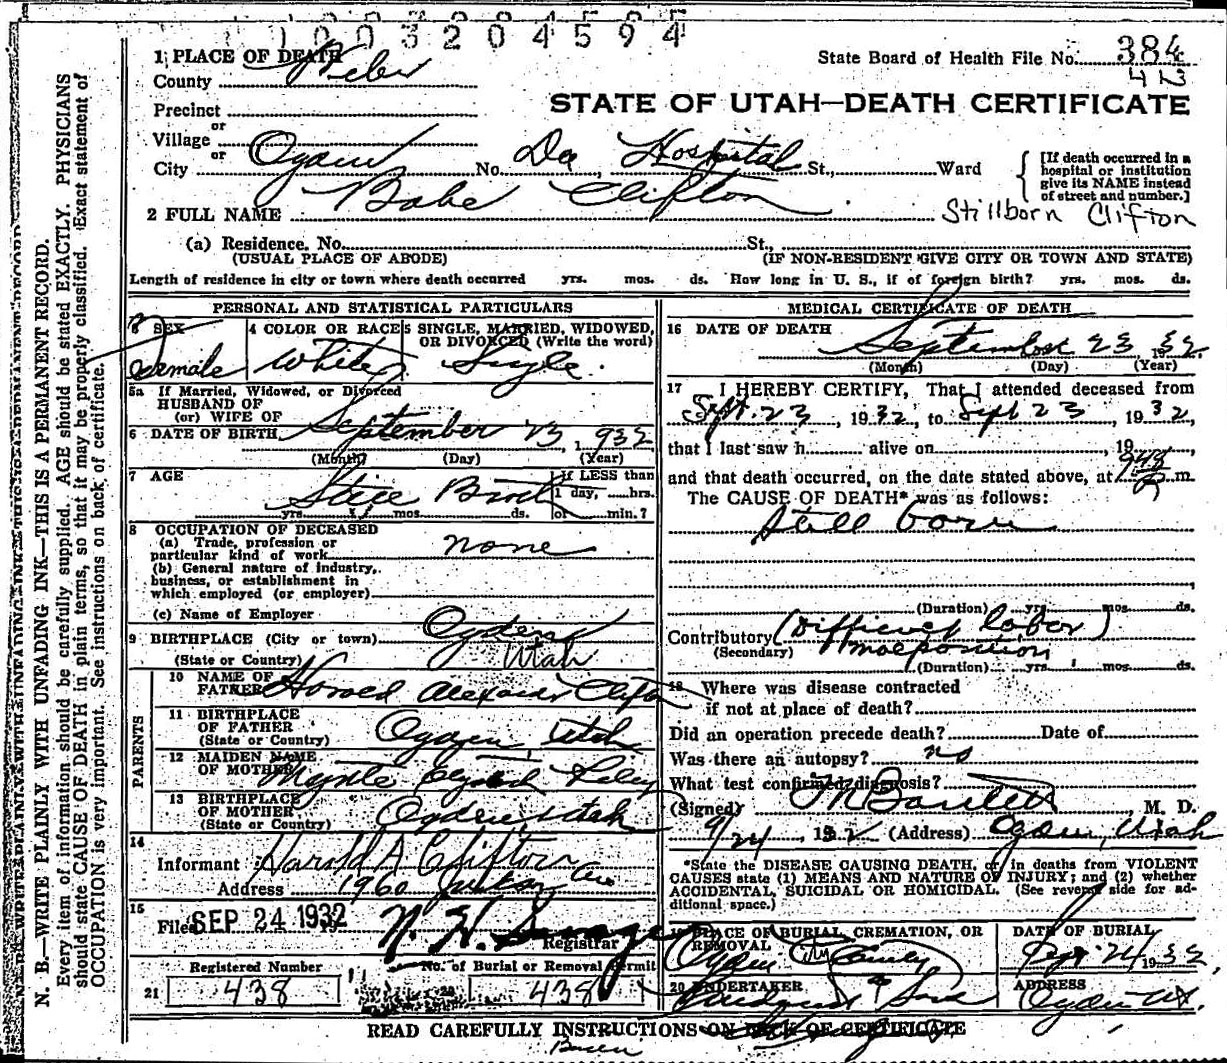 1003204594
1 PLACE OF DEATH
County Weber
State Board of Health File No. 384
413
STATE OF UTAH—DEATH CERTIFICATE
Precinct
or
Village
or
City Ogden No. Dee Hospital St., Ward
[If death occurred in a hospital or institution give its NAME instead of street and number.]
2 FULL NAME Babe Clifton
Stillborn Clifton
(a) Residence. No. St.,
(USUAL PLACE OF ABODE) (IF NON-RESIDENT GIVE CITY OR TOWN AND STATE)
Length of residence in city or town where death occurred yrs. mos. ds. How long in U. S., if of foreign birth? yrs. mos. ds.
PERSONAL AND STATISTICAL PARTICULARS
3 SEX Female
4 COLOR OR RACE White
5 SINGLE, MARRIED, WIDOWED, OR DIVORCED (Write the word) Single
5a If Married, Widowed, or Divorced
HUSBAND OF
(or) WIFE OF
6 DATE OF BIRTH September 23, 1932
(Month) (Day) (Year)
7 AGE If LESS than
1 day, hrs.
yrs. mos. ds. or min.?
8 OCCUPATION OF DECEASED
(a) Trade, profession or
particular kind of work none
(b) General nature of industry,
business, or establishment in
which employed (or employer)
(c) Name of Employer
9 BIRTHPLACE (City or town) Ogden
(State or Country) Utah
PARENTS
10 NAME OF FATHER Harold Alexander Clifton
11 BIRTHPLACE OF FATHER (State or Country) Ogden, Utah
12 MAIDEN NAME OF MOTHER Myrtle
13 BIRTHPLACE OF MOTHER (State or Country) Ogden, Utah
14
Informant Harold A Clifton
Address 1960 Ave
15
Filed SEP 24 1932
N. H. Savage
Registrar
Registered Number
No. of Burial or Removal Permit
21 438 438
MEDICAL CERTIFICATE OF DEATH
16 DATE OF DEATH
September 23, 1932.
(Month) (Day) (Year)
17 I HEREBY CERTIFY, That I attended deceased from
Sept. 23, 1932, to Sept 23, 1932,
that I last saw h alive on , 19
and that death occurred, on the date stated above, at 948 m.
The CAUSE OF DEATH* was as follows:
Still born
(Duration) yrs. mos. ds.
Contributory (Difficult labor)
(Secondary) Malposition
(Duration) yrs. mos. ds.
18 Where was disease contracted
if not at place of death?
Did an operation precede death? Date of
Was there an autopsy? no
What test confirmed diagnosis?
(Signed) Bartlett M. D.
9/24 1932 (Address) Ogden, Utah
*State the DISEASE CAUSING DEATH, or, in deaths from VIOLENT
CAUSES state (1) MEANS AND NATURE OF INJURY; and (2) whether
ACCIDENTAL, SUICIDAL OR HOMICIDAL. (See reverse side for additional space.)
19 PLACE OF BURIAL, CREMATION, OR REMOVAL
Ogden City
DATE OF BURIAL
Sept 24, 1932,
20 UNDERTAKER
ADDRESS
Ogden Ut.
READ CAREFULLY INSTRUCTIONS ON BACK OF CERTIFICATE
N. B.—WRITE PLAINLY WITH UNFADING INK—THIS IS A PERMANENT RECORD.
Every item of information should be carefully supplied. AGE should be stated EXACTLY. PHYSICIANS
should state CAUSE OF DEATH in plain terms, so that it may be properly classified. Exact statement of
OCCUPATION is very important. See instructions on back of certificate.